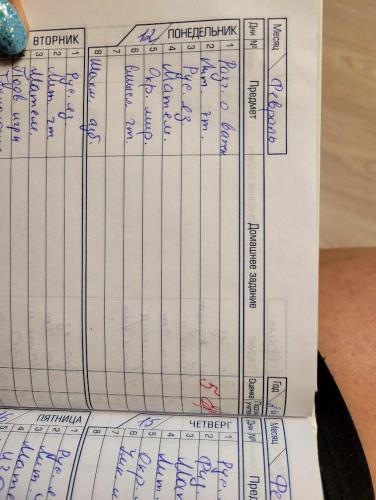 Месяц Февраль Год 24
Дни № Предмет Домашнее задание Оценка
ПОНЕДЕЛЬНИК 12
1 Разг. о важн
2 Лит. чт. 5
3 Рус. яз
4 Матем.
5 Окр. мир.
6 Смысл чт.
7
8 Шахм. клуб.
ВТОРНИК
1 Рус. яз
2 Лит. чт
3 Матем.
Подв. игры
Месяц Фе
Дни № Пред
ЧЕТВЕРГ 15
1 Рус.
2 Физ
3 Мат
4 Лит.
5 Окр
6
7
8
ПЯТНИЦА
1 Рус. я
2 Лит. ч
3 Мате